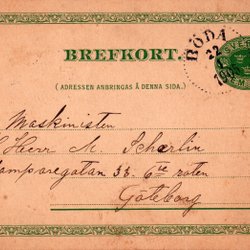 BREFKORT.
RÖDA
22
(ADRESSEN ANBRINGAS Å DENNA SIDA.)
Maskinisten
Herr M. Scharlin
Kamparegatan 33. 6te roten
Göteborg